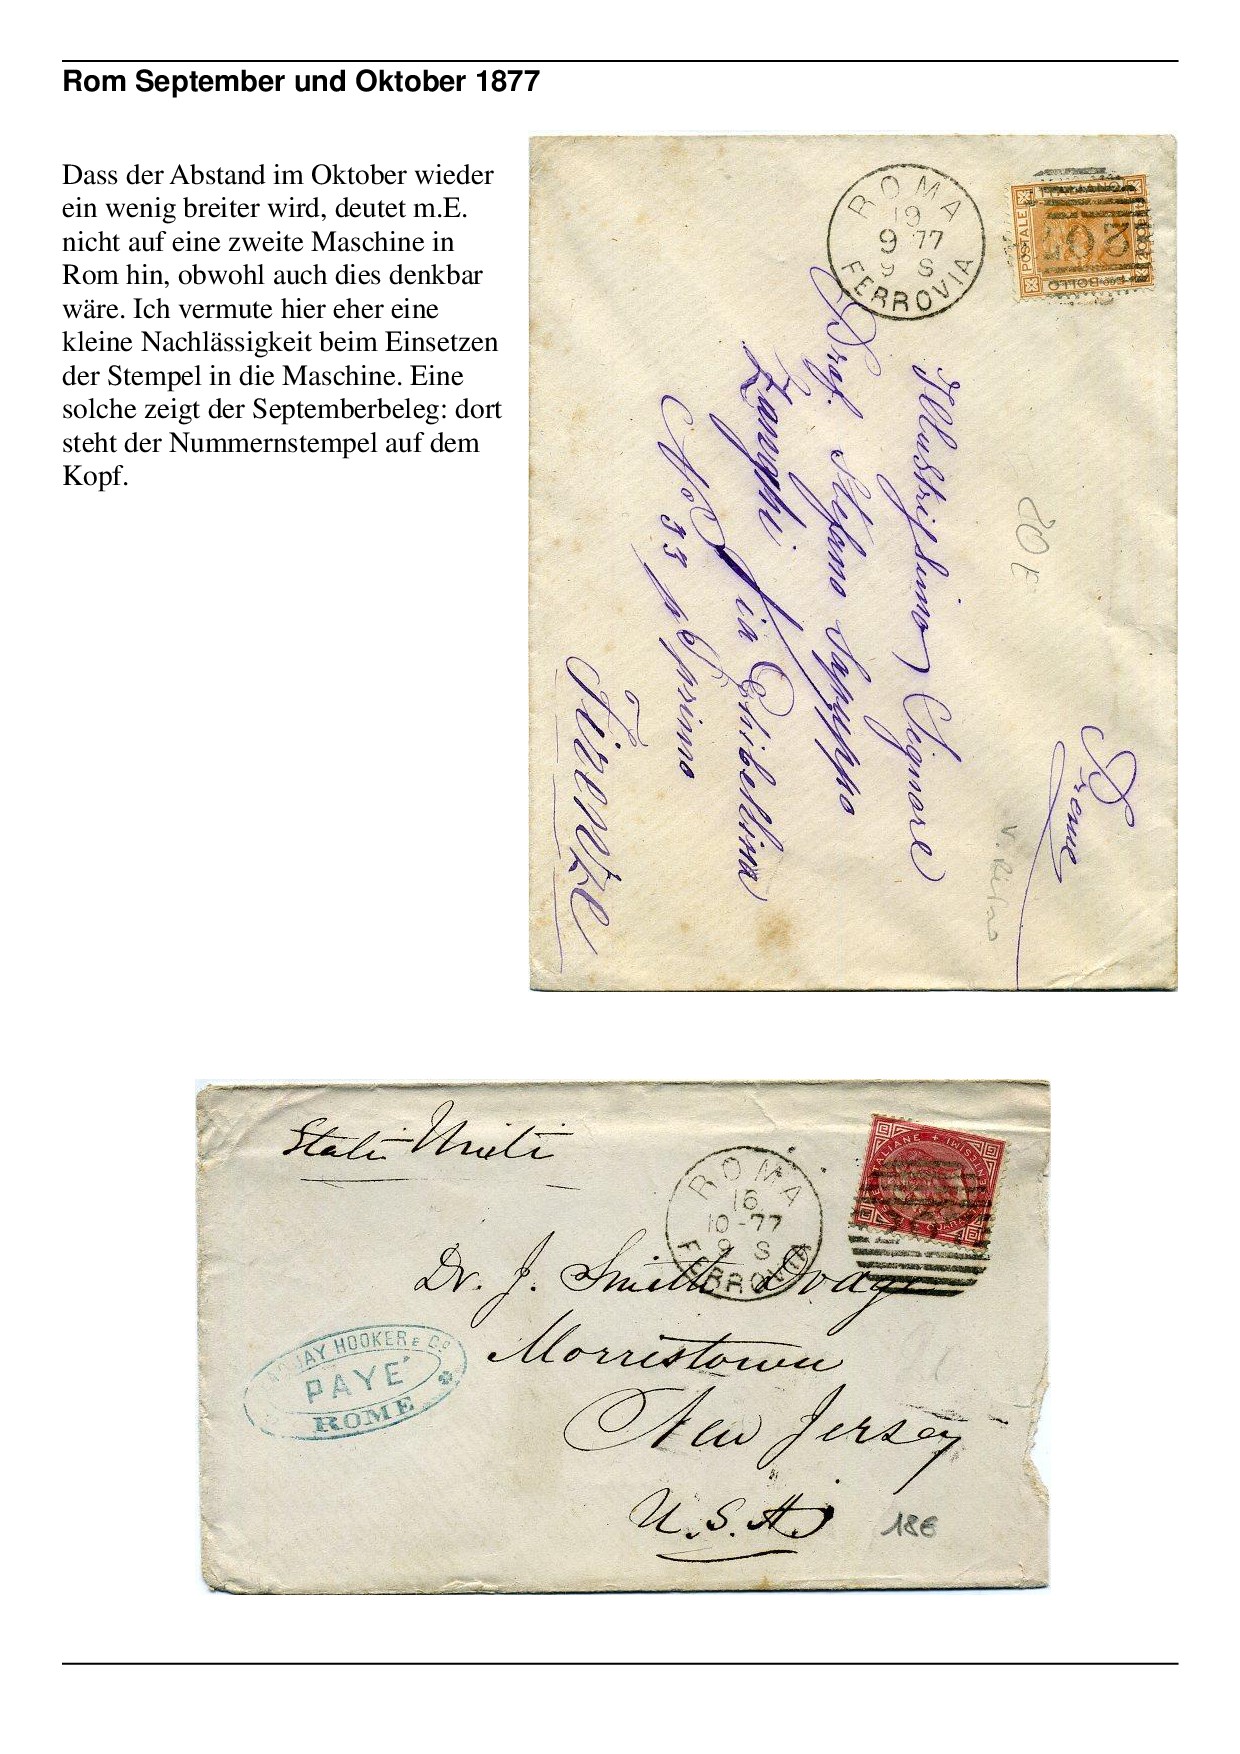 Rom September und Oktober 1877
Dass der Abstand im Oktober wieder
ein wenig breiter wird, deutet m.E.
nicht auf eine zweite Maschine in
Rom hin, obwohl auch dies denkbar
wäre. Ich vermute hier eher eine
kleine Nachlässigkeit beim Einsetzen
der Stempel in die Maschine. Eine
solche zeigt der Septemberbeleg: dort
steht der Nummernstempel auf dem
Kopf.
ROMA
19
9 77
9 S
FERROVIA
POSTALE
BOLLO
207
Illustrissimo Signore
Prof. Stefano
Via Ghibellina
No 33 p. Primo
Firenze
20 E
Stati Uniti
ROMA
16
10-77
9 S
FERROVIA
Dr. J. Smith Dodge
Morristown
New Jersey
U.S.A.
HOOKER & Co
PAYÉ
ROME
18€